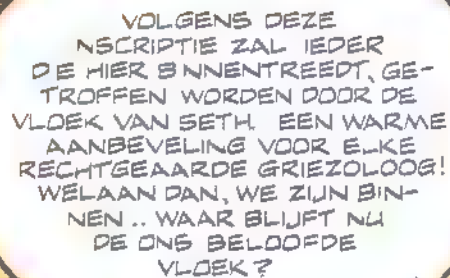 VOLGENS DEZE
NSCRIPTIE ZAL IEDER
D E HIER B NNENTREEDT, GE-
TROFFEN WORDEN DOOR DE
VLOEK VAN SETH. EEN WARME
AANBEVELING VOOR ELKE
RECHTGEAARDE GRIEZOLOOG!
WELAAN DAN, WE ZIJN BIN-
NEN .. WAAR BLIJFT NU
DE ONS BELOOFDE
VLOEK?